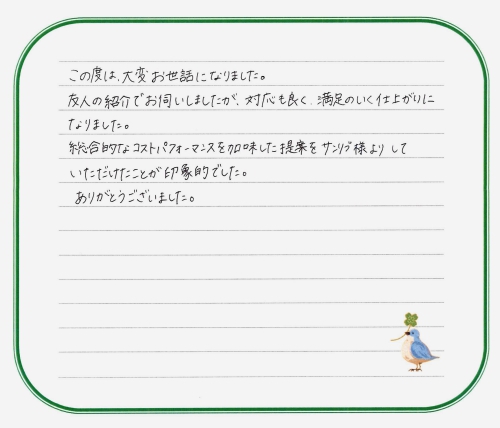 この度は、大変お世話になりました。
友人の紹介でお伺いしましたが、対応も良く、満足のいく仕上がりに
なりました。
総合的なコストパフォーマンスを加味した提案をサンリブ様よりして
いただけたことが印象的でした。
ありがとうございました。